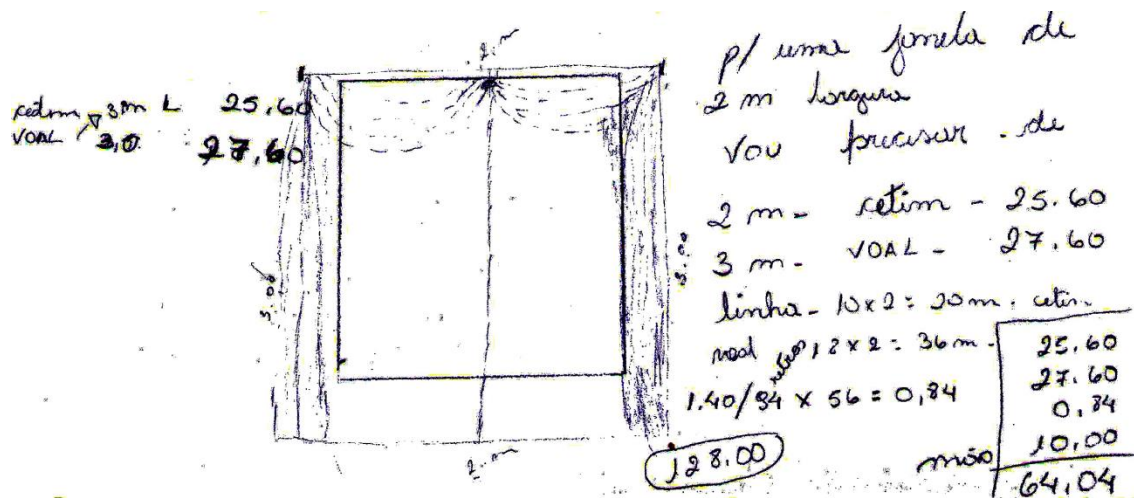 2. m
cetim 3 m L 25.60
VOAL 3,0 27.60
3.00
3.00
2. m
p/ uma janela de
2 m largura
vou precisar de
2 m - cetim - 25.60
3 m - VOAL - 27.60
linha - 10 x 2 = 20 m. cetim
voal 18 x 2 = 36 m -
1.40/94 x 56 = 0,84
128.00
25.60
27.60
0,84
mão 10.00
64,04